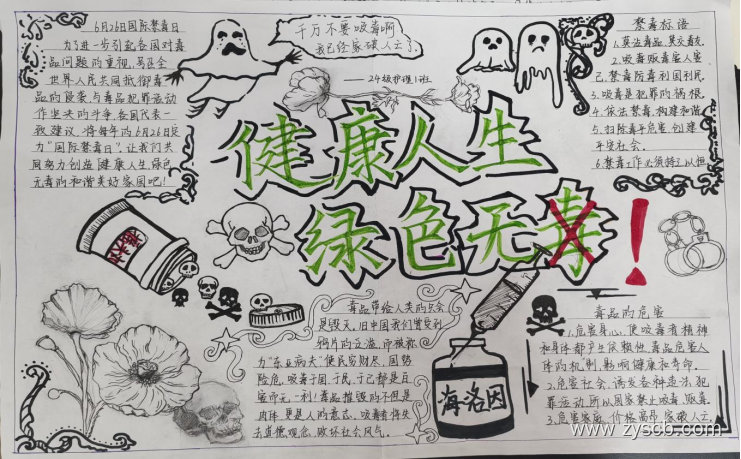 6月26日国际禁毒日
为了进一步引起各国对毒
品问题的重视，号召全
世界人民共同抵御毒
品的侵袭，与毒品犯罪活动
作坚决的斗争，各国代表一
致建议，将每年的6月26日定
为"国际禁毒日"。让我们共
同努力创造健康人生，绿色
无毒的和谐美好家园吧！
千万不要吸毒啊
我已经家破人亡了
——24级护理1班
禁毒标语
1.莫沾毒品，莫交毒友.
2.吸毒贩毒害人害
己.禁毒防毒利国利民.
3.吸毒是犯罪的祸根.
4.依法禁毒，构建和谐
5.扫除毒品危害，创建
平安社会.
6.禁毒工作必须持之以恒
健康人生
绿色无毒！
毒品带给人类的只会
是毁灭，旧中国我们曾受到
鸦片的泛滥，而被称
为"东亚病夫"使民穷财尽，国势
险危，吸毒于国，于民，于己都是百
害而无一利！毒品摧毁的不但是
肉体，更是人的意志，吸毒者将失
去道德观念，破坏社会风气。
海洛因
毒品的危害
1.危害身心，使吸毒者精神
和身体都产生依赖性，毒品危害人
体的机制，影响健康和寿命.
2.危害社会，诱发各种违法，犯
罪活动，所以国家禁止吸毒，贩毒.
3.危害家庭，价格高昂，家破人亡.
www.zyscb.com